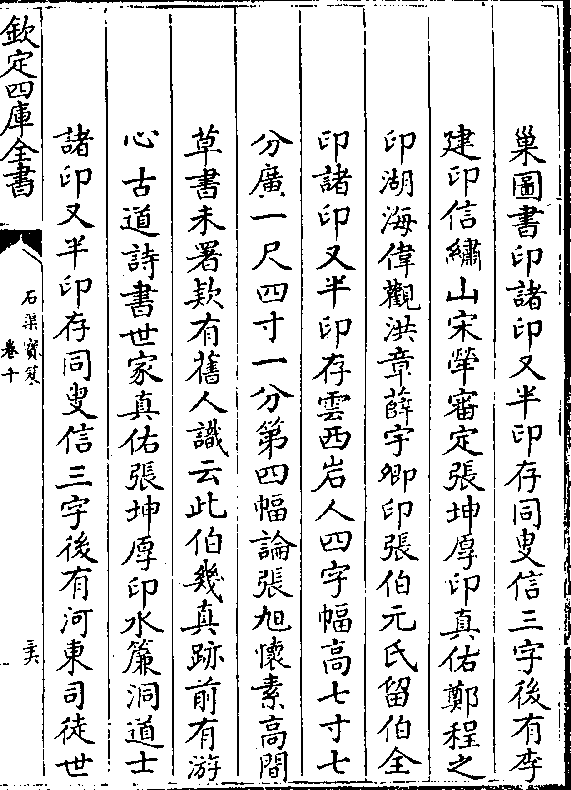 巢圖書印諸印又半印存同叟信三字後有李
建印信繡山宋犖審定張坤厚印真佑鄭程之
印湖海偉觀洪章薛宇卿印張伯元氏留伯全
印諸印又半印存雲西岩人四字幅髙七寸七
分廣一尺四寸一分第四幅論張旭懷素髙閒
草書未署款有舊人識云此伯幾真跡前有游
心古道詩書世家真佑張坤厚印水簾洞道士
諸印又半印存同叟信三字後有河東司徒世
欽定四庫全書
石渠寳笈
卷十